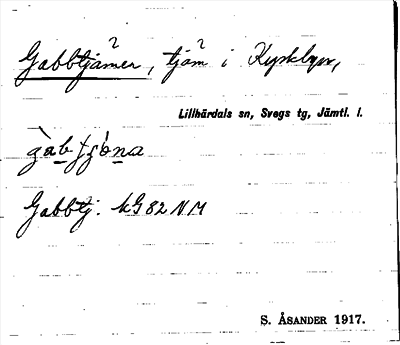 Gabbtjärner, tjärn i Kyrkbyn,
Lillhärdals sn, Svegs tg, Jämtl. l.
gàbʃɡö̀na
Gabbtj. kG82NM
S. ÅSANDER 1917.